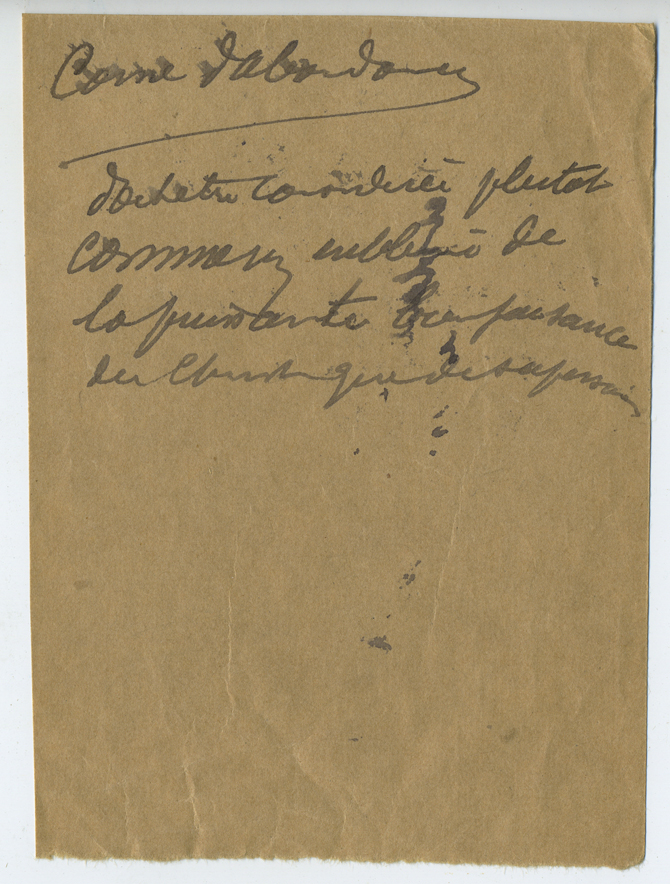 Corne d'abondance
doit etre considéré plutot
comme un emblème de
la puissante bienfaisance
du Christ que de sa passion